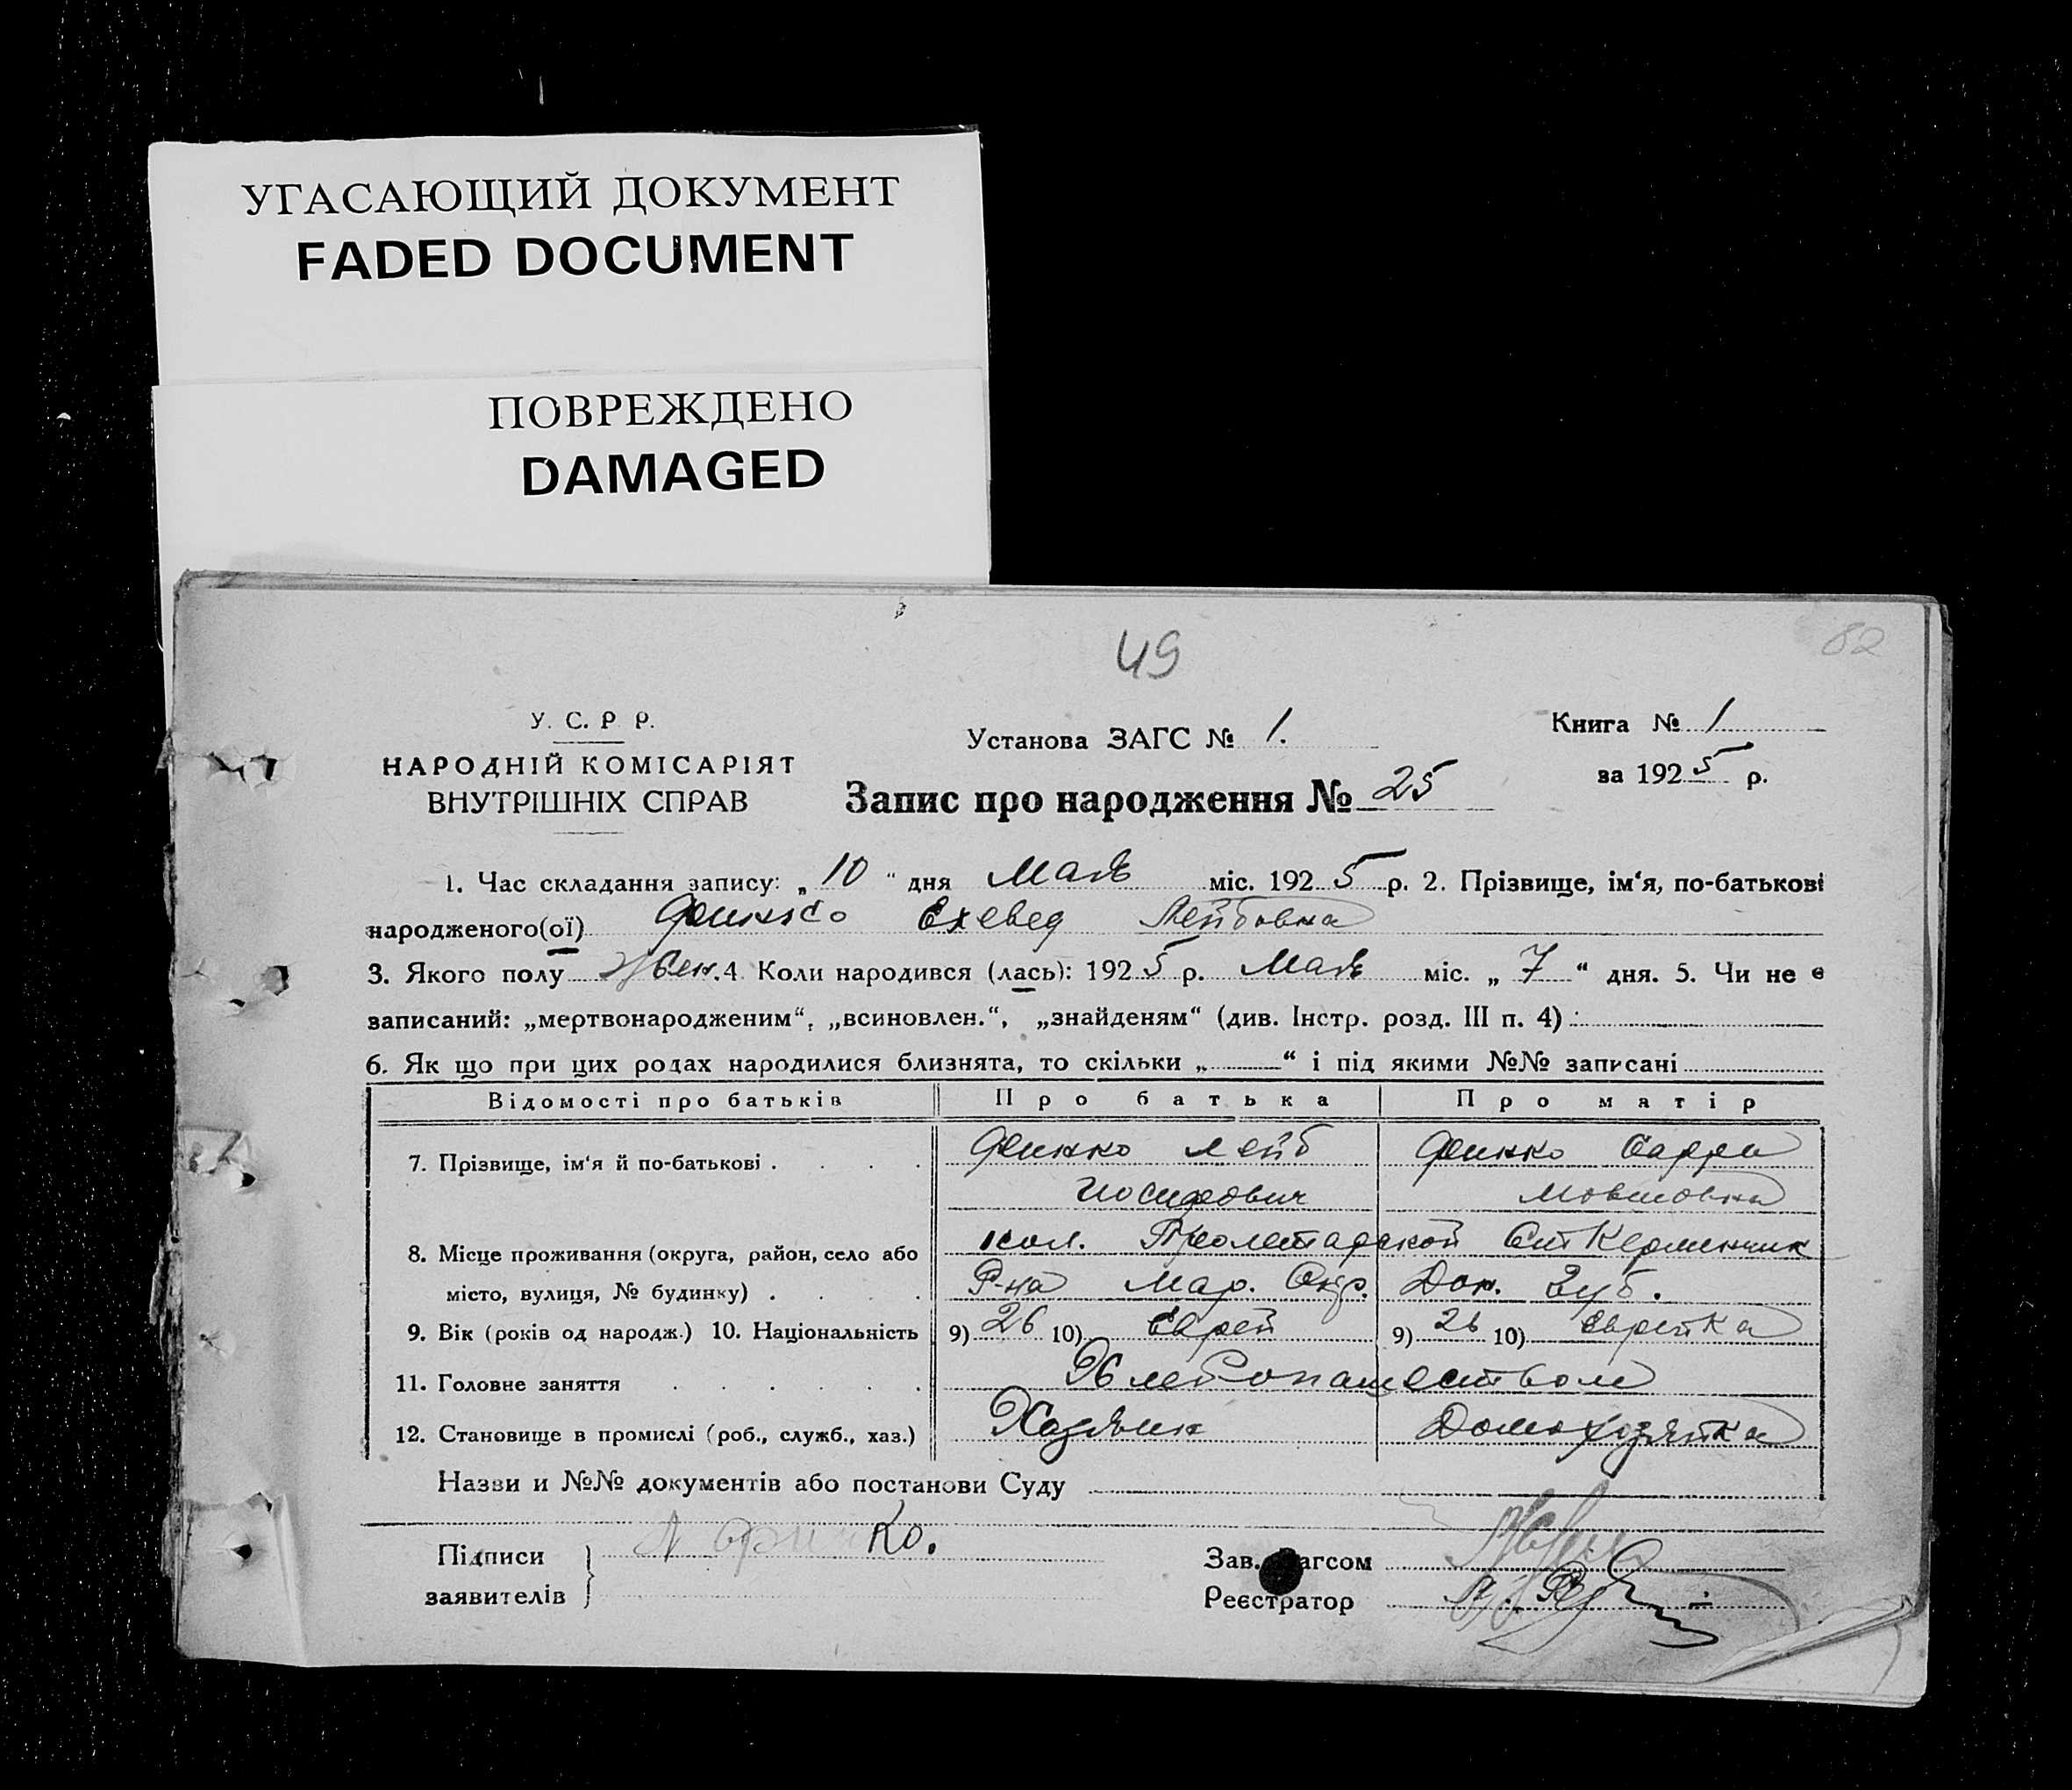 УГАСАЮЩИЙ ДОКУМЕНТ
FADED DOCUMENT
ПОВРЕЖДЕНО
DAMAGED
49
82
У. С. Р Р.
НАРОДНІЙ КОМІСАРІЯТ
ВНУТРІШНІХ СПРАВ
Установа ЗАГС № 1.
Запис про народження № 25
Книга № 1
за 1925 р.
1. Час складання запису: „ 10 " дня Мая міс. 1925 р. 2. Прізвище, ім'я, по-батькові
народженого(ої) Финко Ехевед Лейбовна
3. Якого полу Жен. 4 Коли народився (лась): 1925 р. Мая міс. „ 7 " дня. 5. Чи не є
записаний: „мертвонародженим", „всиновлен.", „знайденям" (див. Інстр. розд. III п. 4) :
6. Як що при цих родах народилися близнята, то скільки „ " і під якими №№ записані
Відомості про батьків Про батька Про матір
7. Прізвище, ім'я й по-батькові . . . . Финко Лейб Финко Сарра
Иосифович Мовшовна
8. Місце проживання (округа, район, село або кол. Пролетарской Ст Керменчик
місто, вулиця, № будинку) . . . . Р-на Мар. Окр. Дон. Губ.
9. Вік (років од народж.) 10. Національність 9) 26 10) Еврей 9) 26 10) Еврейка
11. Головне заняття . . . . . . Хлебопашеством
12. Становище в промислі (роб., служб., хаз.) Хозяин Домохозяйка
Назви и №№ документів або постанови Суду
Підписи
заявителів
Л Финко.
Зав. Загсом
Реєстратор